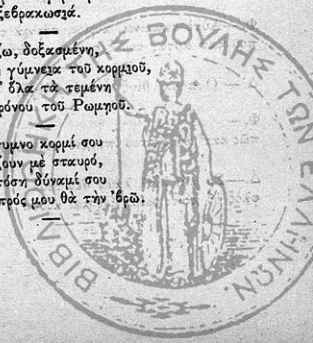 ξεβρακωσιά.
ω, δοξασμένη,
γύμνεια τοῦ κορμιοῦ,
ὅλα τὰ τεμένη
ρόνου τοῦ Ρωμηοῦ.
γυμνο κορμί σου
ουν μὲ σταυρό,
τόση δύναμί σου
πρός μου θὰ τὴν 'βρῶ.
ΒΙΒΛ ΤΗΣ ΒΟΥΛΗΣ ΤΩΝ ΕΛΛΗΝΩΝ